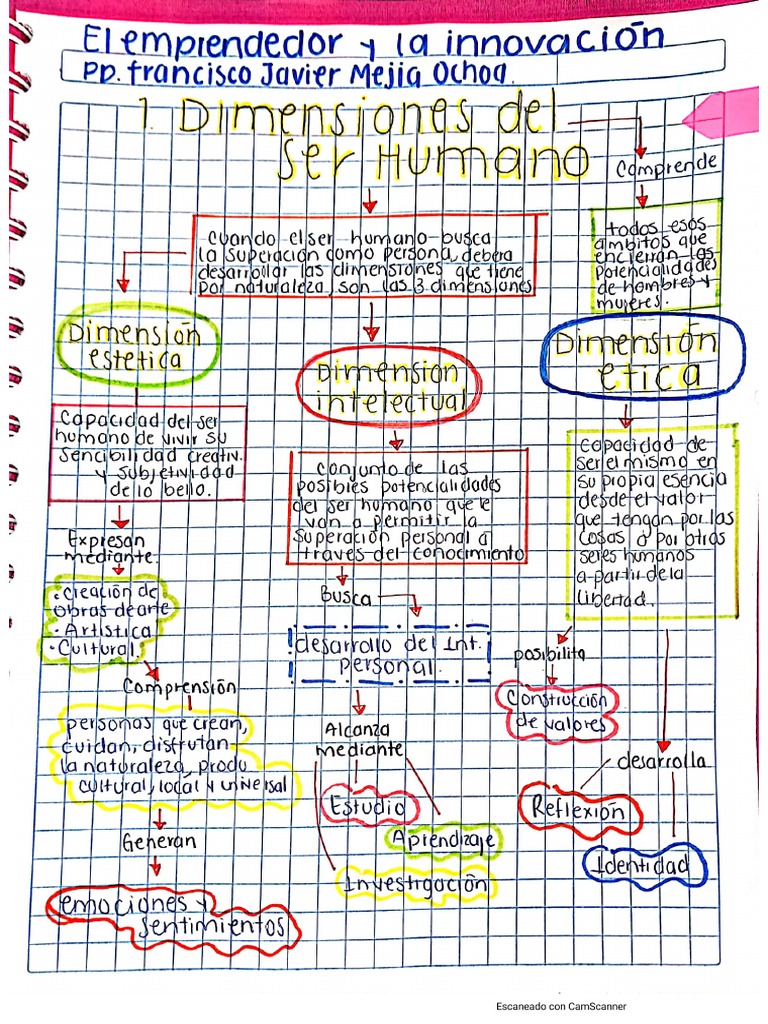 El emprendedor y la innovación
PP. Francisco Javier Mejia Ochoa.
1. Dimensiones del
Ser Humano
Comprende
todos esos
ambitos que
encierran las
potencialidades
de hombres y
mujeres.
cuando el ser humano busca
la superación como persona, debera
desarrollar las dimensiones que tiene
por naturaleza, son las 3 dimensiones
Dimensión
estetica
Capacidad del ser
humano de vivir su
sencibilidad creativ.
y subjetividad
de lo bello.
Expresan
mediante.
·creación de
obras de arte
·Artistica
·Cultural.
Comprensión
personas que crean,
cuidan, disfrutan
la naturaleza, produ
cultural, local y universal
Generan
emociones y
sentimientos
Dimension
intelectual
conjunto de las
posibles potencialidades
del ser humano que le
van a permitir la
superación personal a
traves del conocimiento
Busca
desarrollo del Int.
personal.
Alcanza
mediante
Estudio
Aprendizaje
Investigación
Dimensión
etica
capacidad de
ser el mismo en
su propia esencia
desde el valor
que tengan por las
cosas o por otros
seres humanos
a partir de la
libertad.
posibilita
Construcción
de valores
desarrolla
Reflexión
Identidad
Escaneado con CamScanner